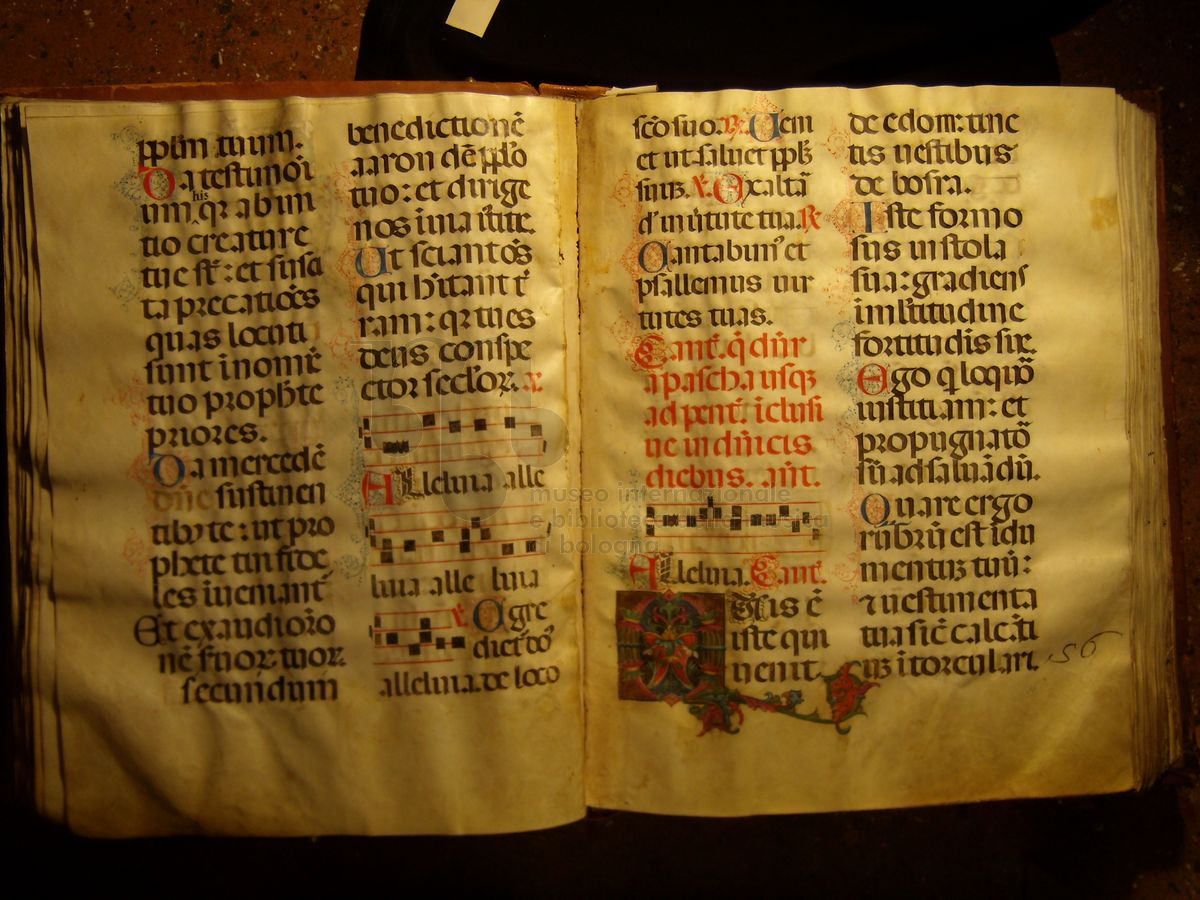 pplm tuum.
Da testimoi
um his qr ab ini
tio creature
tue st: et susci
ta precatiões
quas locuti
sunt i nomie
tuo prophete
priores.
Da mercedẽ
sustinen
tibȝ te: ut pro
phete tui fide
les inueniant
Et exaudi orõ
nẽ seruor tuor
secundum
benedictionẽ
aaron de pplo
tuo: et dirige
nos i uia iustitie.
Ut sciant oẽs
qui hitant t
ram: qr tu es
deus conspe
ctor sclor. v.
Alleluia alle
luia alle luia
v. Agre
dicẽ do
alleluia. de loco
sco suo. R. Uem
et ut saluet pplȝ
suuȝ. v. Exalta
d i uirtute tua. R
Cantabim' et
psallemus uir
tutes tuas.
Cant. q dnr
a pascha usqȝ
ad pent. i clusi
ue in dnicis
diebus. añt.
Alleluia. Cant.
Quis ẽ
iste qui
uenit
de edom: tinc
tis uestibus
de bosra.
Iste formo
sus in stola
sua: gradiens
i multitudine
fortitudis sue.
Ego q loquor
iustitiam: et
propugnatõ
sũ ad saluãdũ.
Quare ergo
rubrũ est idu
mentuȝ tuũ:
⁊ uestimenta
tua sic calcãti
uȝ i torculari.
56
museo internazionale
e biblioteca della musica
di bologna